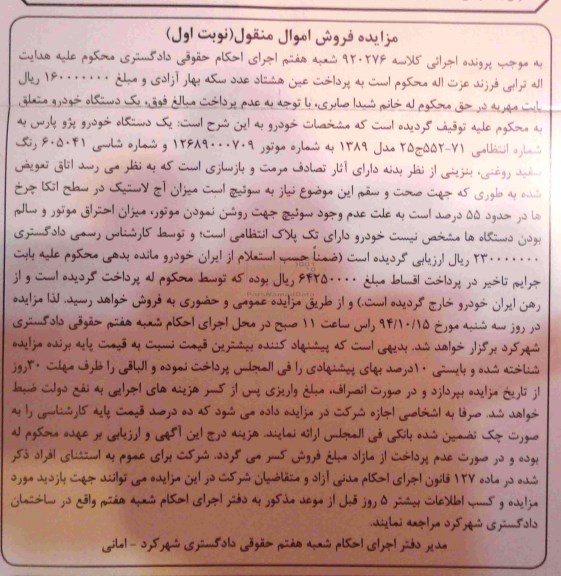 مزایده فروش اموال منقول(نوبت اول)
به موجب پرونده اجرائی کلاسه ۹۲۰۲۷۶ شعبه هفتم اجرای احکام حقوقی دادگستری محکوم علیه هدایت
اله ترابی فرزند عزت اله محکوم است به پرداخت عین هشتاد عدد سکه بهار آزادی و مبلغ ۱۶۰۰۰۰۰۰۰ ریال
بابت مهریه در حق محکوم له خانم شیدا صابری، با توجه به عدم پرداخت مبالغ فوق، یک دستگاه خودرو متعلق
به محکوم علیه توقیف گردیده است که مشخصات خودرو به این شرح است: یک دستگاه خودرو پژو پارس به
شماره انتظامی ۷۱-۵۵۲ج۲۵ مدل ۱۳۸۹ به شماره موتور ۱۲۶۸۹۰۰۰۷۰۹ و شماره شاسی ۶۰۵۰۴۱ رنگ
سفید روغنی، بنزینی از نظر بدنه دارای آثار تصادف مرمت و بازسازی است که به نظر می رسد اتاق تعویض
شده به طوری که جهت صحت و سقم این موضوع نیاز به سوئیچ است میزان آج لاستیک در سطح اتکا چرخ
ها در حدود ۵۵ درصد است به علت عدم وجود سوئیچ جهت روشن نمودن موتور، میزان احتراق موتور و سالم
بودن دستگاه ها مشخص نیست خودرو دارای تک پلاک انتظامی است؛ و توسط کارشناس رسمی دادگستری
۲۳۰۰۰۰۰۰۰ ریال ارزیابی گردیده است (ضمناً حسب استعلام از ایران خودرو مانده بدهی محکوم علیه بابت
جرایم تاخیر در پرداخت اقساط مبلغ ۶۴۲۵۰۰۰۰ ریال بوده که توسط محکوم له پرداخت گردیده است و از
رهن ایران خودرو خارج گردیده است.) و از طریق مزایده عمومی و حضوری به فروش خواهد رسید. لذا مزایده
در روز سه شنبه مورخ ۹۴/۱۰/۱۵ راس ساعت ۱۱ صبح در محل اجرای احکام شعبه هفتم حقوقی دادگستری
شهرکرد برگزار خواهد شد. بدیهی است که پیشنهاد کننده بیشترین قیمت نسبت به قیمت پایه برنده مزایده
شناخته شده و بایستی ۱۰درصد بهای پیشنهادی را فی المجلس پرداخت نموده و الباقی را ظرف مهلت ۳۰روز
از تاریخ مزایده بپردازد و در صورت انصراف، مبلغ واریزی پس از کسر هزینه های اجرایی به نفع دولت ضبط
خواهد شد. صرفا به اشخاصی اجازه شرکت در مزایده داده می شود که ده درصد قیمت پایه کارشناسی را به
صورت چک تضمین شده بانکی فی المجلس ارائه نمایند. هزینه درج این آگهی و ارزیابی بر عهده محکوم له
بوده و در صورت عدم پرداخت از مازاد مبلغ فروش کسر می گردد. شرکت برای عموم به استثنای افراد ذکر
شده در ماده ۱۲۷ قانون اجرای احکام مدنی آزاد و متقاضیان شرکت در این مزایده می توانند جهت بازدید مورد
مزایده و کسب اطلاعات بیشتر ۵ روز قبل از موعد مذکور به دفتر اجرای احکام شعبه هفتم واقع در ساختمان
دادگستری شهرکرد مراجعه نمایند.
مدیر دفتر اجرای احکام شعبه هفتم حقوقی دادگستری شهرکرد - امانی